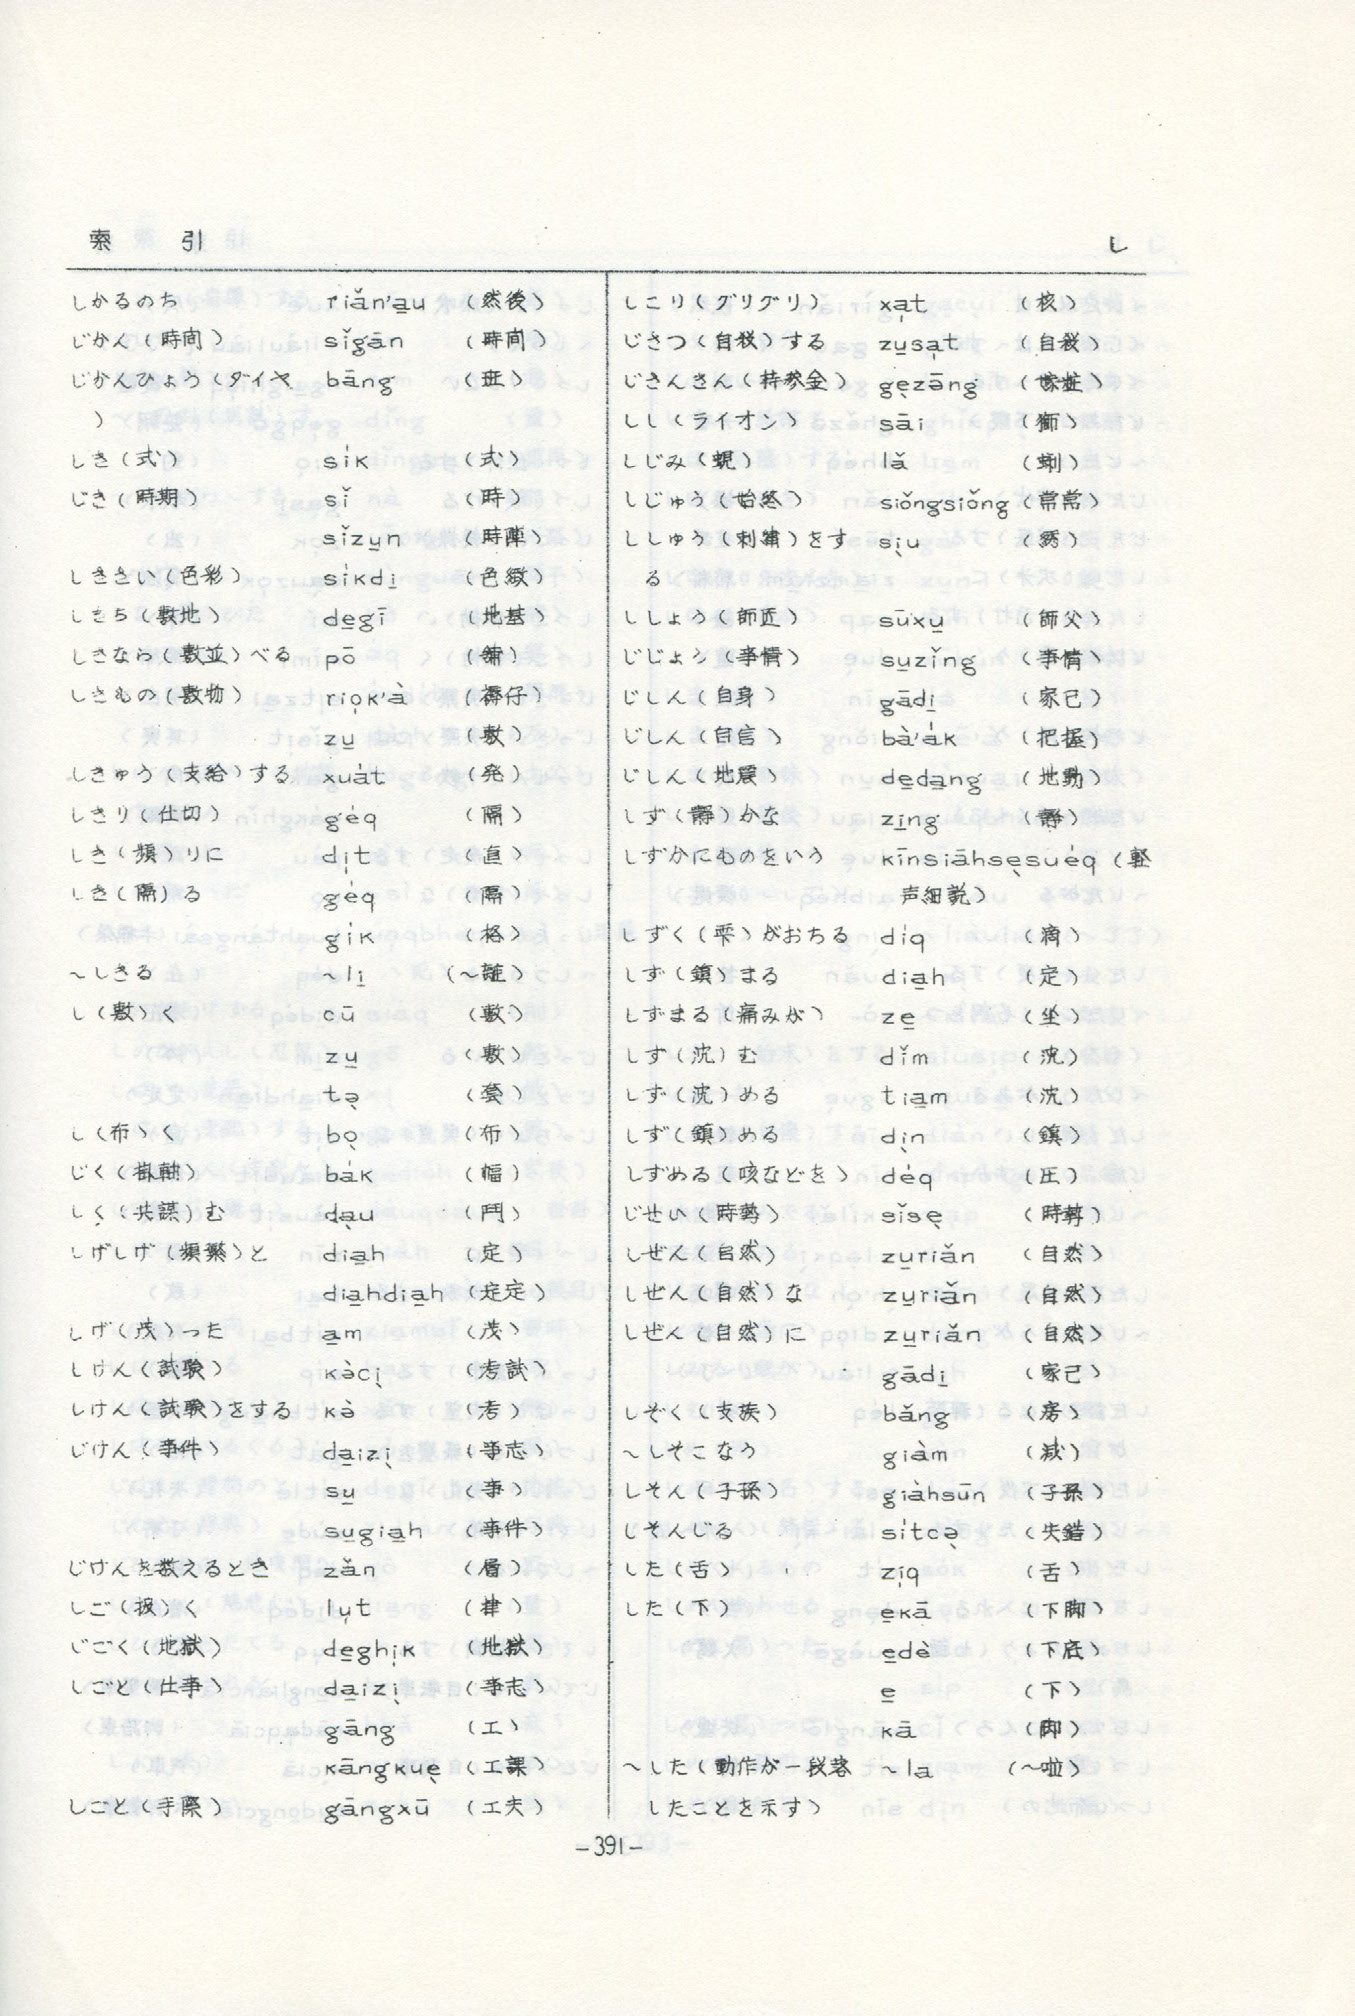 索 引
し
しかるのち riǎn'a̱u (然後)
じかん(時間) sǐgān (時間)
じかんひょう(ダイヤ bāng (班)
)
しき(式) si̍k (式)
じき(時期) sǐ (時)
sǐzu̱n (時陣)
しきさい(色彩) si̍kdi̱ (色緻)
しきち(敷地) de̱gī (地基)
しきなら(敷並)べる pō (舗)
しきもの(敷物) riọk'à (褥仔)
zu̱ (敷)
しきゅう(支給)する xua̍t (発)
しきり(仕切) ge̍q (隔)
しき(頻)りに dị̍t (直)
しき(隔)る ge̍q (隔)
gi̍k (格)
～しきる ～li̱ (～離)
し(敷)く cū (敷)
zu̱ (敷)
tə̱
し(布)く bọ (布)
じく(掛軸) ba̍k (幅)
しく(共謀)む dạu (鬥)
しげしげ(頻繁)と dia̱h (定)
dia̱hdia̱h (定定)
しげ(茂)った a̱m (茂)
しけん(試験) kə̀cị (考試)
しけん(試験)をする kə̀ (考)
じけん(事件) da̱izị (事志)
su̱ (事)
su̱gia̱h (事件)
じけんを数えるとき zǎn (層)
しご(扱)く lụt
じごく(地獄) de̱ghịk (地獄)
しごと(仕事) da̱izị (事志)
gāng (工)
kāngkuẹ (工課)
しごと(手際) gāngxū (工夫)
しこり(グリグリ) xạt (核)
じさつ(自殺)する zu̱sạt (自殺)
じさんきん(持参金) gẹzāng (嫁粧)
しし(ライオン) sāi (獅)
しじみ(蜆) lǎ (蜊)
しじゅう(始終) siǒngsiǒng (常常)
ししゅう(刺繍)をす sịu (綉)
る
ししょう(師匠) sūxu̱ (師父)
じじょう(事情) su̱zǐng (事情)
じしん(自身) gādi̱ (家己)
じしん(自信) bà'a̍k (把握)
じしん(地震) de̱da̱ng (地動)
しず(静)かな zi̱ng (静)
しずかにものをいう kīnsiāhsẹsue̍q (軽
声細説)
しずく(雫)がおちる di̍q (滴)
しず(鎮)まる dia̱h (定)
しずまる(痛みが) ze̱ (坐)
しず(沈)む dǐm (沈)
しず(沈)める tia̱m (沈)
しず(鎮)める dịn (鎮)
しずめる(咳などを) de̍q (圧)
じせい(時勢) sǐsẹ (時勢)
しぜん(自然) zu̱riǎn (自然)
しぜん(自然)な zu̱riǎn (自然)
しぜん(自然)に zu̱riǎn (自然)
gādi̱ (家己)
しぞく(支族) bǎng (房)
～しそこなう giàm (減)
しそん(子孫) giàhsūn (子孫)
しそんじる si̍tcə̣ (失錯)
した(舌) zịq (舌)
した(下) e̱kā (下脚)
e̱dè (下底)
e̱ (下)
kā (脚)
～した(動作が一段落 ～la (～啦)
したことを示す)
—391—